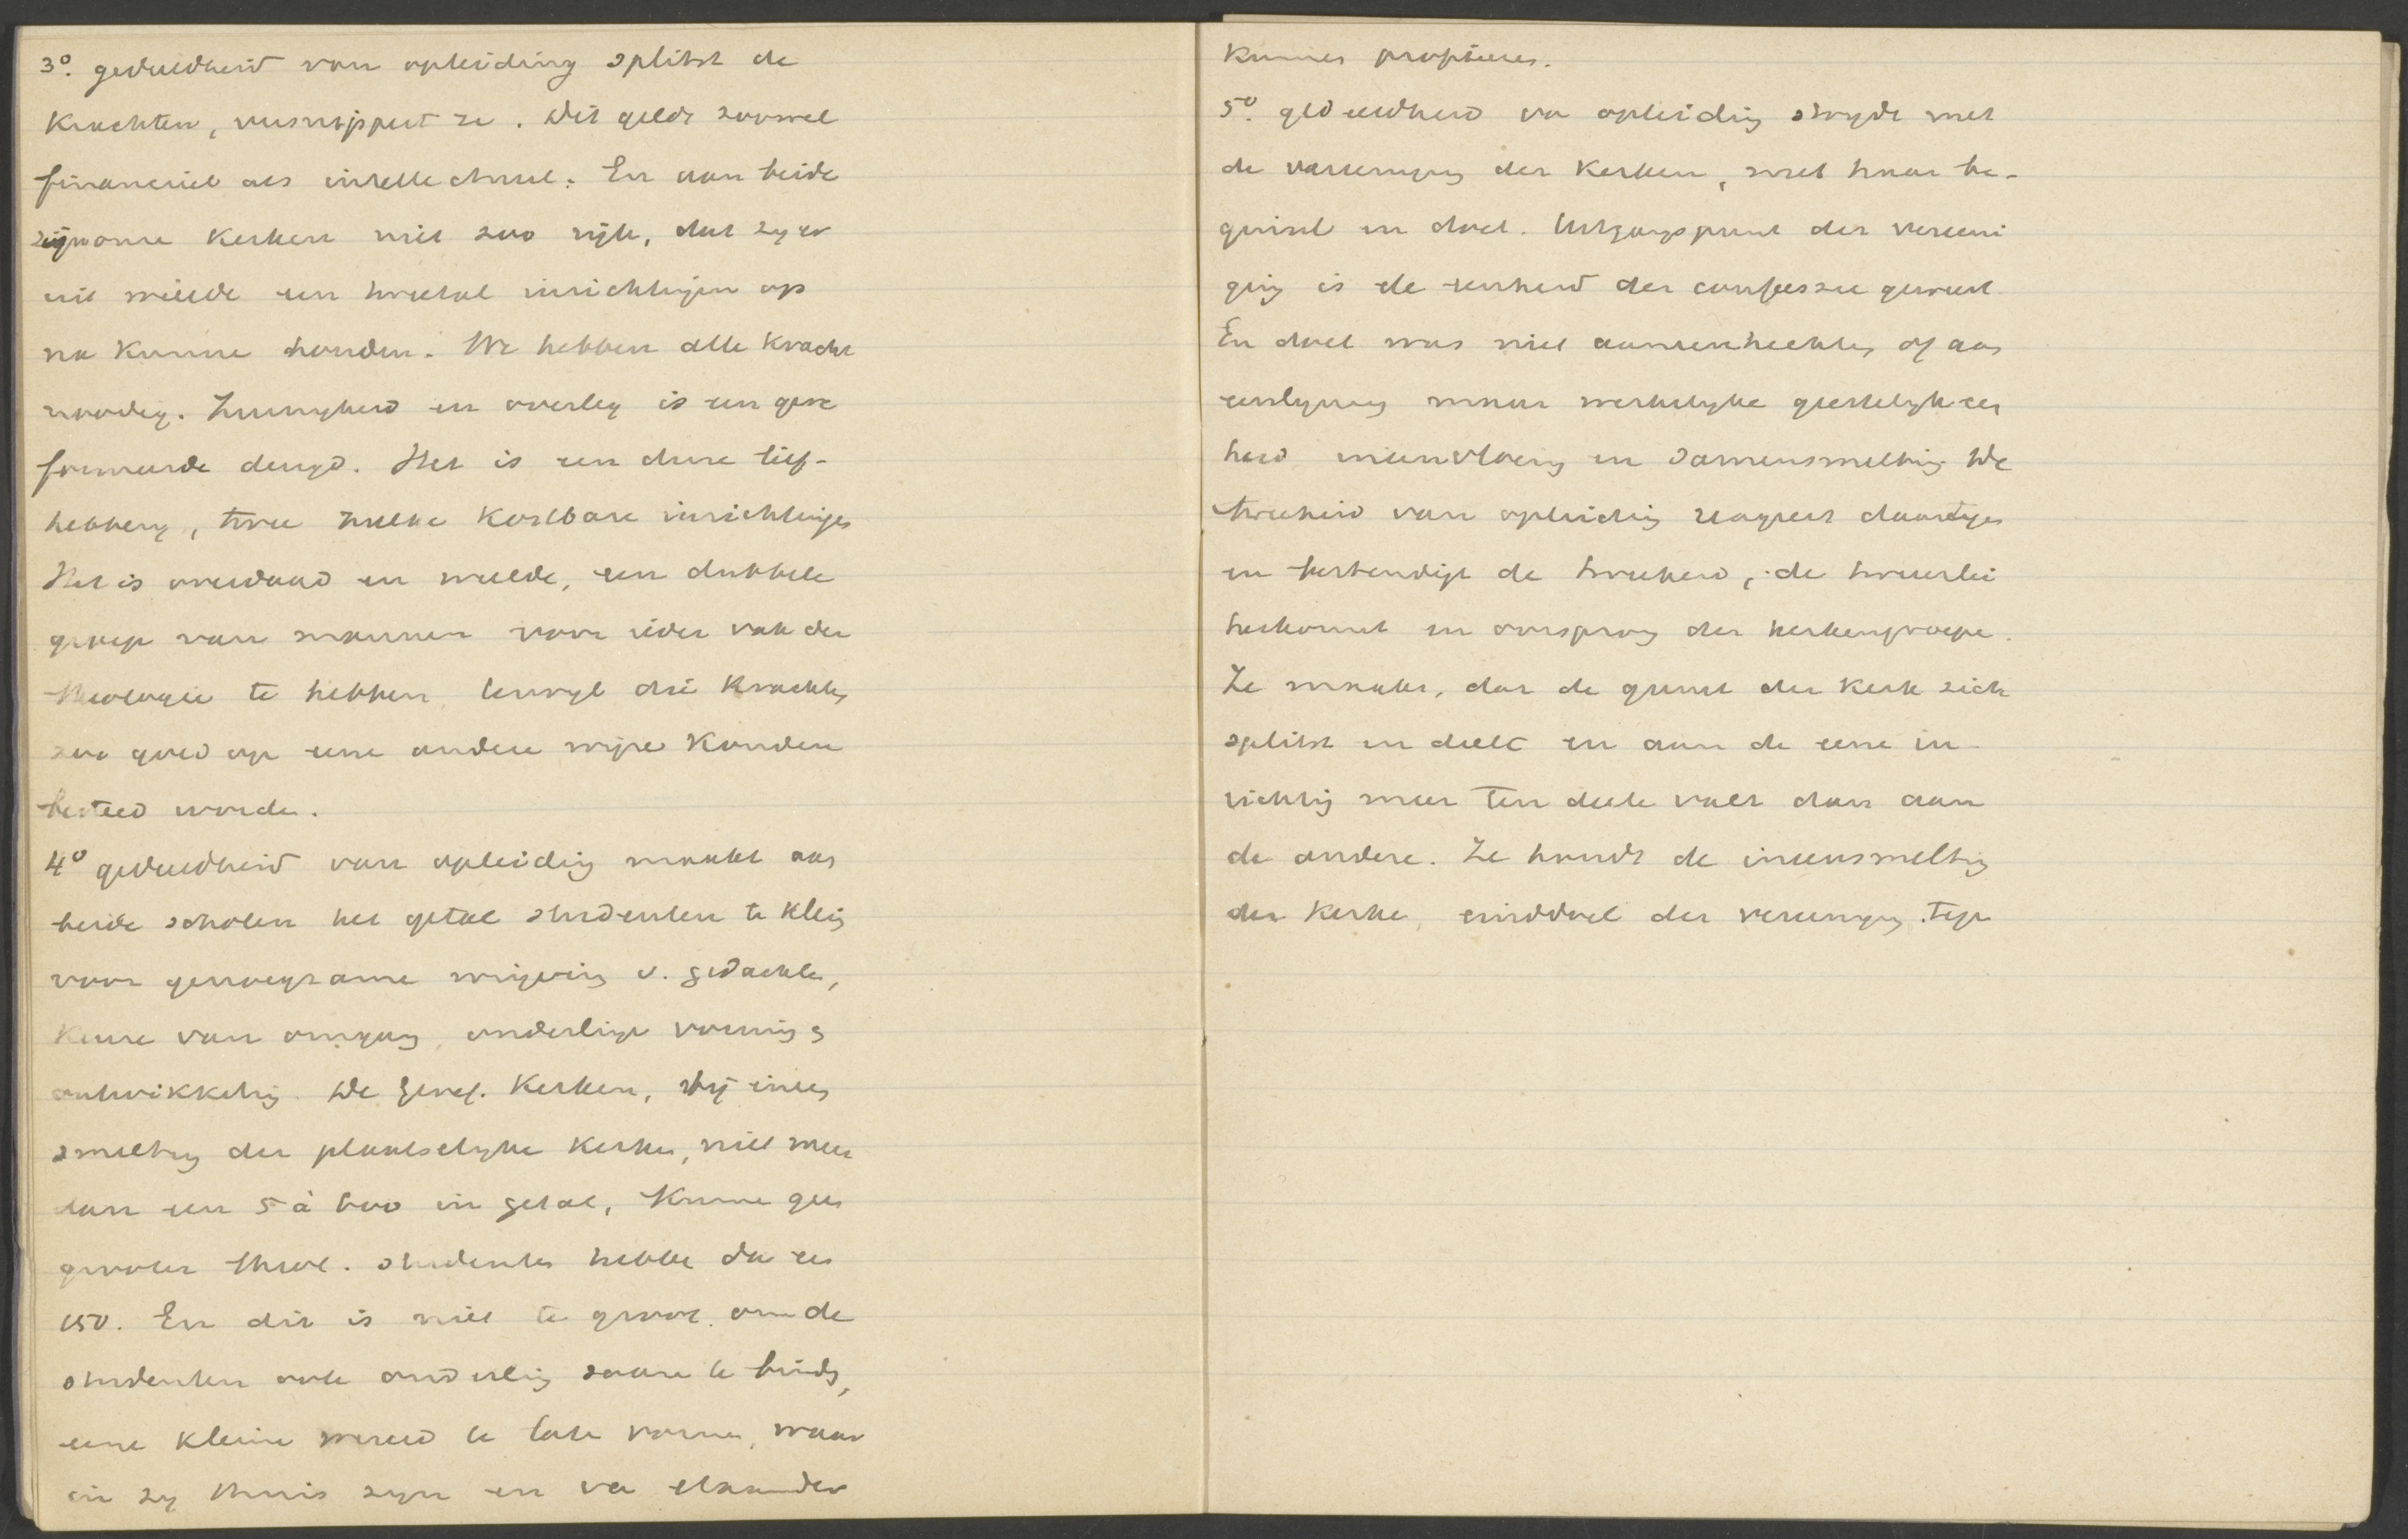 3°. gedeeldheid van opleiding splitst de
Krachten, versnippert ze. Dit geldt zoowel
financieel als intellectueel. En aan beide
zijn onze Kerken niet zoo rijk, dat zy er
uit weelde een tweetal inrichtingen op
na kunne houden. We hebben alle Kracht
noodig. Zuinigheid en overleg is een gere
formeerde deugd. Het is een dure lief-
hebbery, twee zulke Kostbare inrichtingen
Het is overdaad en weelde, een dubbele
groep van mannen voor ieder vak der
theologie te hebben, terwyl die Krachten
zoo goed op eene andere wijze Konden
besteed worde.
4° gedeeldheid van opleiding maakt aan
beide scholen het getal studenten te klein
voor genoegzame wrijving v. gedachte,
Keuze van omgang, onderlinge vorming &
ontwikkeling. De Geref. Kerken, bij ineen
smelting der plaatselyke Kerken, niet meer
dan een 5 à 600 in getal, Kunne geen
grooter theol. studenten hebbe dan een
150. En dit is niet te groot om de
studenten ook onderling saam te binden,
eene kleine wereld te late vormen, waar
in zy thuis zyn en van elkander
Kunnen profiteren.
5°. gedeeldheid van opleiding strydt met
de vereeniging der Kerken, met haar be-
ginsel en doel. Uitgangspunt der vereeni
ging is de eenheid der confessie geweest.
En doel was niet aaneenhechting of aan
eenlyming maar werkelyke geestelyke een
heid ineenvloeiing en samensmelting. De
tweeheid van opleiding reageert daartegen
en bestendigt de tweeheid, de tweeërlei
herkomst en oorsprong der kerkengroepe.
Ze maakt, dat de gunst der Kerk zich
splitst en deelt en aan de eene in-
richting meer ten deele valt dan aan
de andere. Ze houdt de ineensmelting
der Kerke, einddoel der vereeniging, tege